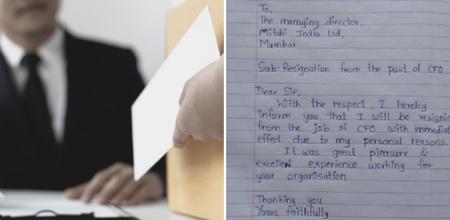 To,
The managing director,
Mitshi India Ltd,
Mumbai
Sub: Resignation from the post of CFO
Dear Sir,
With the respect, I hereby
inform you that I will be resignin
from the job of CFO with immediat
effect due to my personal reasons.
It was great pleasure &
excellent experience working for
your organisation
Thanking you
Yours faithfully